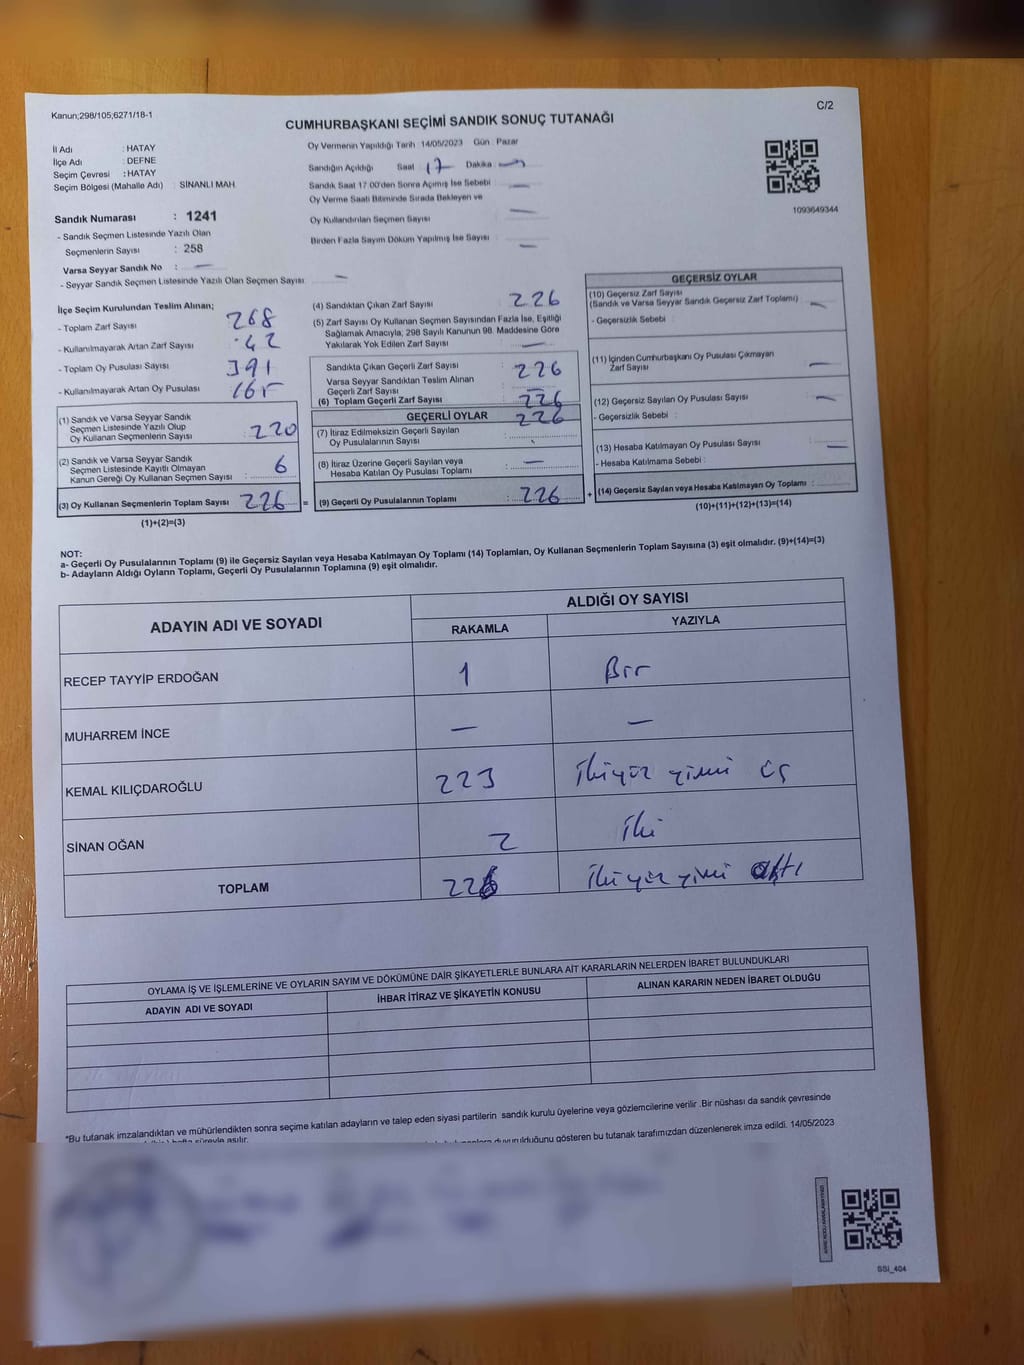 Kanun;298/105;6271/18-1
C/2
CUMHURBAŞKANI SEÇİMİ SANDIK SONUÇ TUTANAĞI
İl Adı : HATAY
İlçe Adı : DEFNE
Seçim Çevresi : HATAY
Seçim Bölgesi (Mahalle Adı) : SİNANLI MAH.
Oy Vermenin Yapıldığı Tarih 14/05/2023 Gün : Pazar
Sandığın Açıldığı Saat 17 Dakika : —
Sandık Saat 17.00'den Sonra Açılmış İse Sebebi : —
Oy Verme Saati Bitiminde Sırada Bekleyen ve
Oy Kullandırılan Seçmen Sayısı : —
Birden Fazla Sayım Döküm Yapılmış İse Sayısı : —
1093649344
Sandık Numarası : 1241
- Sandık Seçmen Listesinde Yazılı Olan
Seçmenlerin Sayısı : 258
Varsa Seyyar Sandık No : —
- Seyyar Sandık Seçmen Listesinde Yazılı Olan Seçmen Sayısı : —
İlçe Seçim Kurulundan Teslim Alınan;
- Toplam Zarf Sayısı : 268
- Kullanılmayarak Artan Zarf Sayısı : 42
- Toplam Oy Pusulası Sayısı : 391
- Kullanılmayarak Artan Oy Pusulası : 165
(1) Sandık ve Varsa Seyyar Sandık
Seçmen Listesinde Yazılı Olup
Oy Kullanan Seçmenlerin Sayısı : 220
(2) Sandık ve Varsa Seyyar Sandık
Seçmen Listesinde Kayıtlı Olmayan
Kanun Gereği Oy Kullanan Seçmen Sayısı : 6
(3) Oy Kullanan Seçmenlerin Toplam Sayısı 226 =
(1)+(2)=(3)
(4) Sandıktan Çıkan Zarf Sayısı : 226
(5) Zarf Sayısı Oy Kullanan Seçmen Sayısından Fazla İse, Eşitliği
Sağlamak Amacıyla, 298 Sayılı Kanunun 98. Maddesine Göre
Yakılarak Yok Edilen Zarf Sayısı : —
Sandıkta Çıkan Geçerli Zarf Sayısı : 226
Varsa Seyyar Sandıktan Teslim Alınan
Geçerli Zarf Sayısı : —
(6) Toplam Geçerli Zarf Sayısı : 226
GEÇERLİ OYLAR
(7) İtiraz Edilmeksizin Geçerli Sayılan 226
Oy Pusulalarının Sayısı :
(8) İtiraz Üzerine Geçerli Sayılan veya
Hesaba Katılan Oy Pusulası Toplamı : —
(9) Geçerli Oy Pusulalarının Toplamı : 226 +
GEÇERSİZ OYLAR
(10) Geçersiz Zarf Sayısı
(Sandık ve Varsa Seyyar Sandık Geçersiz Zarf Toplamı) : —
- Geçersizlik Sebebi :
(11) İçinden Cumhurbaşkanı Oy Pusulası Çıkmayan
Zarf Sayısı : —
(12) Geçersiz Sayılan Oy Pusulası Sayısı : —
- Geçersizlik Sebebi :
(13) Hesaba Katılmayan Oy Pusulası Sayısı : —
- Hesaba Katılmama Sebebi :
(14) Geçersiz Sayılan veya Hesaba Katılmayan Oy Toplamı :
(10)+(11)+(12)+(13)=(14)
NOT:
a- Geçerli Oy Pusulalarının Toplamı (9) ile Geçersiz Sayılan veya Hesaba Katılmayan Oy Toplamı (14) Toplamları, Oy Kullanan Seçmenlerin Toplam Sayısına (3) eşit olmalıdır. (9)+(14)=(3)
b- Adayların Aldığı Oyların Toplamı, Geçerli Oy Pusulalarının Toplamına (9) eşit olmalıdır.
ADAYIN ADI VE SOYADI
ALDIĞI OY SAYISI
RAKAMLA YAZIYLA
RECEP TAYYİP ERDOĞAN 1 Bir
MUHARREM İNCE — —
KEMAL KILIÇDAROĞLU 223 ikiyüz yirmi üç
SİNAN OĞAN 2 iki
TOPLAM 226 ikiyüz yirmi altı
OYLAMA İŞ VE İŞLEMLERİNE VE OYLARIN SAYIM VE DÖKÜMÜNE DAİR ŞİKAYETLERLE BUNLARA AİT KARARLARIN NELERDEN İBARET BULUNDUKLARI
ADAYIN ADI VE SOYADI İHBAR İTİRAZ VE ŞİKAYETİN KONUSU ALINAN KARARIN NEDEN İBARET OLDUĞU
*Bu tutanak imzalandıktan ve mühürlendikten sonra seçime katılan adayların ve talep eden siyasi partilerin sandık kurulu üyelerine veya gözlemcilerine verilir .Bir nüshası da sandık çevresinde
hafta süreyle asılır.
duyurulduğunu gösteren bu tutanak tarafımızdan düzenlenerek imza edildi. 14/05/2023
SSI_404